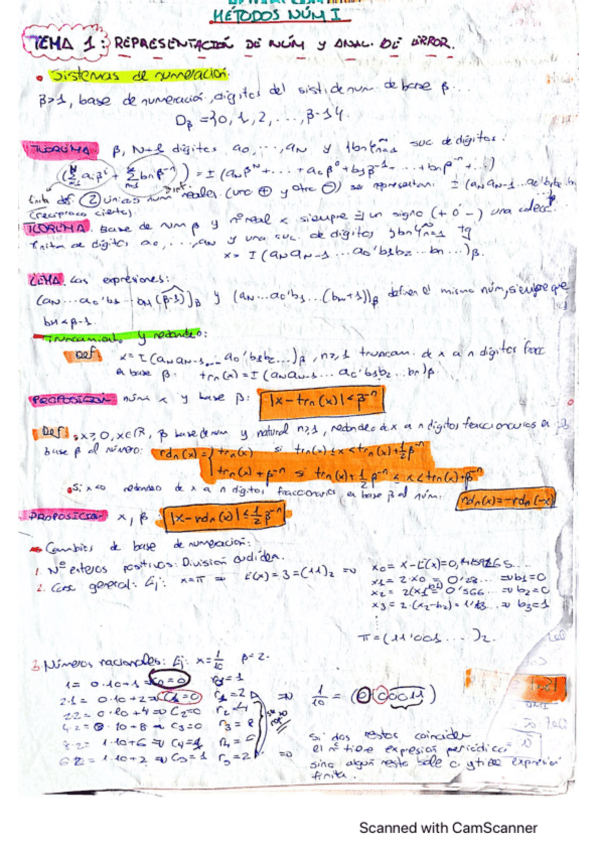 MÉTODOS NÚM I
TEMA 1: REPRESENTACIÓN DE NÚM Y ANAL. DE ERROR.
• Sistemas de numeración:
β>1, base de numeración, dígitos del sist. de num. de base β
Dβ = {0, 1, 2, ..., β-1}.
TEOREMA β, N+1 dígitos a0, ..., aN y {bn} suc de dígitos.
TEOREMA Base de num β y nº real x siempre ∃ un signo (+ ó -) una colecc.
finita de dígitos a0, ..., aN y una suc. de dígitos {bn} tq
x = ±(aN aN-1 ... a0'b1b2 ... bn ...)β.
LEMA Las expresiones:
(aN...a0'b1 ... bM (β-1))β y (aN...a0'b1...(bM+1))β definen el mismo núm, siempre que
bM<β-1.
Truncamiento y redondeo:
Def x = ±(aN aN-1 ... a0'b1b2 ...)β, n≥1 truncam. de x a n dígitos fracc
en base β: trn(x) = ±(aN aN-1 ... a0'b1b2 ... bn)β.
PROPOSICIÓN núm x y base β: |x-trn(x)|≤β^-n
Def: x≥0, x∈ℝ, β base de num y natural n≥1, redondeo de x a n dígitos fraccionarios en
base β al número: rdn(x) = trn(x) si trn(x)≤x<trn(x)+1/2β^-n
trn(x)+β^-n si trn(x)+1/2β^-n ≤ x < trn(x)+β^-n
• Si x<0 redondeo de x a n dígitos fraccionarios en base β al núm. rdn(x)=-rdn(-x)
PROPOSICIÓN x, β |x-rdn(x)|≤1/2β^-n
Cambios de base de numeración:
1. Nº enteros positivos: División euclídea.
2. Caso general: Ej: x=π ⇒ E(x)=3=(11)2 ⇒ x0=x-E(x)=0,14159265...
x1=2·x0=0'28... ⇒ b1=0
x2=2(x1-b1)=0'566... ⇒ b2=0
x3=2·(x2-b2)=1'13... ⇒ b3=1
π=(11'001...)2.
3. Números racionales: Ej: x=1/10 β=2.
1=0·10+1 ⇒ c0=0 r1=1
2·1=0·10+2 ⇒ c1=0 r2=2
2·2=0·10+4 ⇒ c2=0 r3=4
2·4=0·10+8 ⇒ c3=0
8·2=1·10+6 ⇒ c4=1
6·2=1·10+2 ⇒ c5=1
1/10=(0'00011)
Si dos restos coinciden
el nº tiene expresión periódica
sino algún resto sale 0 y tiene expresión
finita.
Scanned with CamScanner